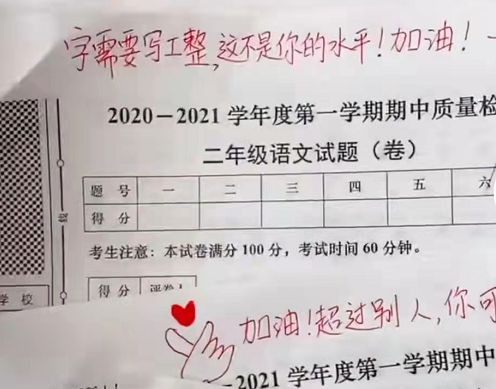 字需要写工整,这不是你的水平!加油!
2020－2021 学年度第一学期期中质量检
二年级语文试题（卷）
题 号 一 二 三 四 五 六
得 分
线
考生注意：本试卷满分 100 分，考试时间 60 分钟。
学 校
得 分 评卷人
加油!超过别人,你可
2021 学年度第一学期期中